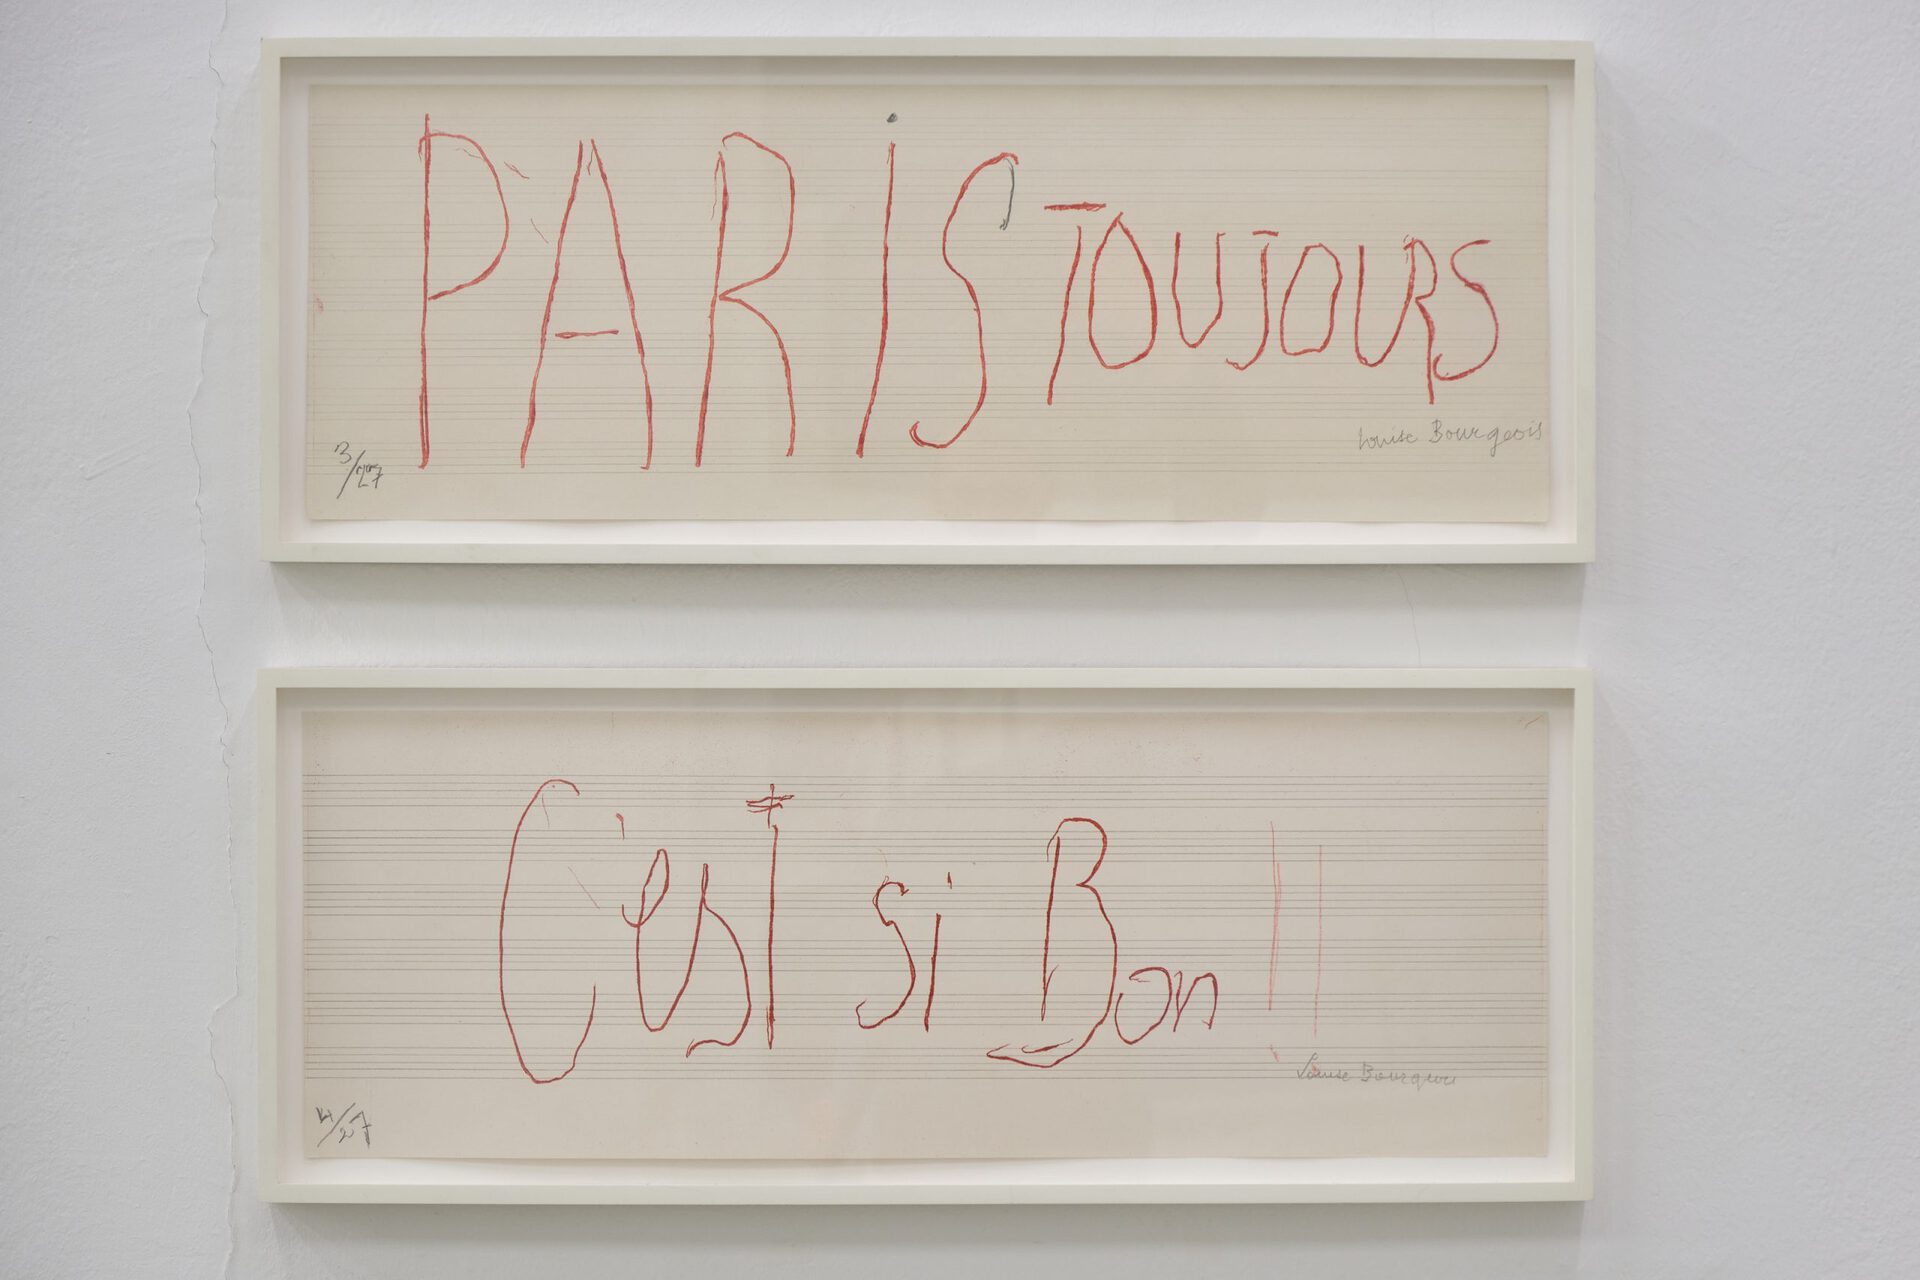 PARiS TOUJOURS
Louise Bourgeois
3/27
C'esT si Bon !!
Louise Bourgeois
/27